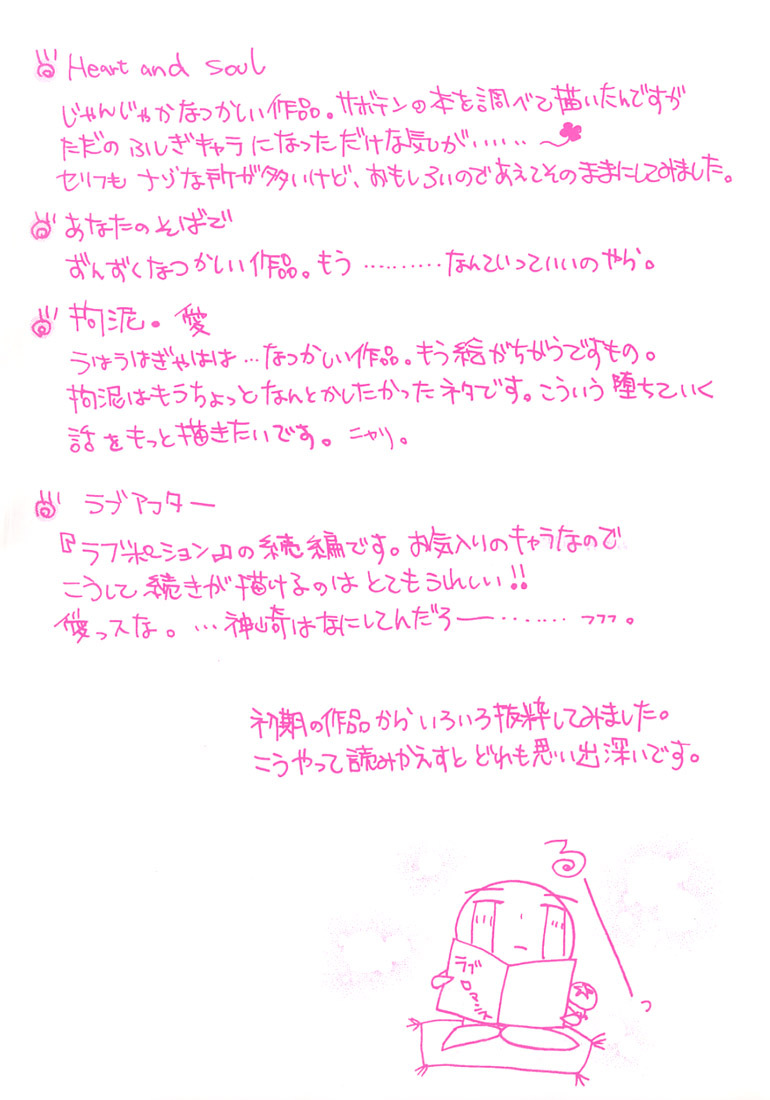 Heart and Soul
じゃんじゃかなつかしい作品。サボテンの本を調べて描いたんですが
ただの ふしぎキャラ になっただけな気が……
セリフも ナゾな所が多いけど、おもしろいのであえてそのままにしてみました。
あなたのそばで
ずんずくなつかしい作品。もう ………なんていっていいのやら。
拘泥。愛
うはうはぎゃはは…なつかしい作品。もう絵がちがうですもの。
拘泥はもうちょっとなんとかしたかったネタです。こういう堕ちていく
話をもっと描きたいです。ニヤリ。
ラブアフター
『ラブポーション』の続編です。お気入りのキャラなので
こうして続きが描けるのは とてもうれしい!!
愛っスな。…神崎はなにしてんだろー……フフフ。
初期の作品から いろいろ抜粋してみました。
こうやって読みかえすと どれも思い出深いです。
る
っ
ラブ